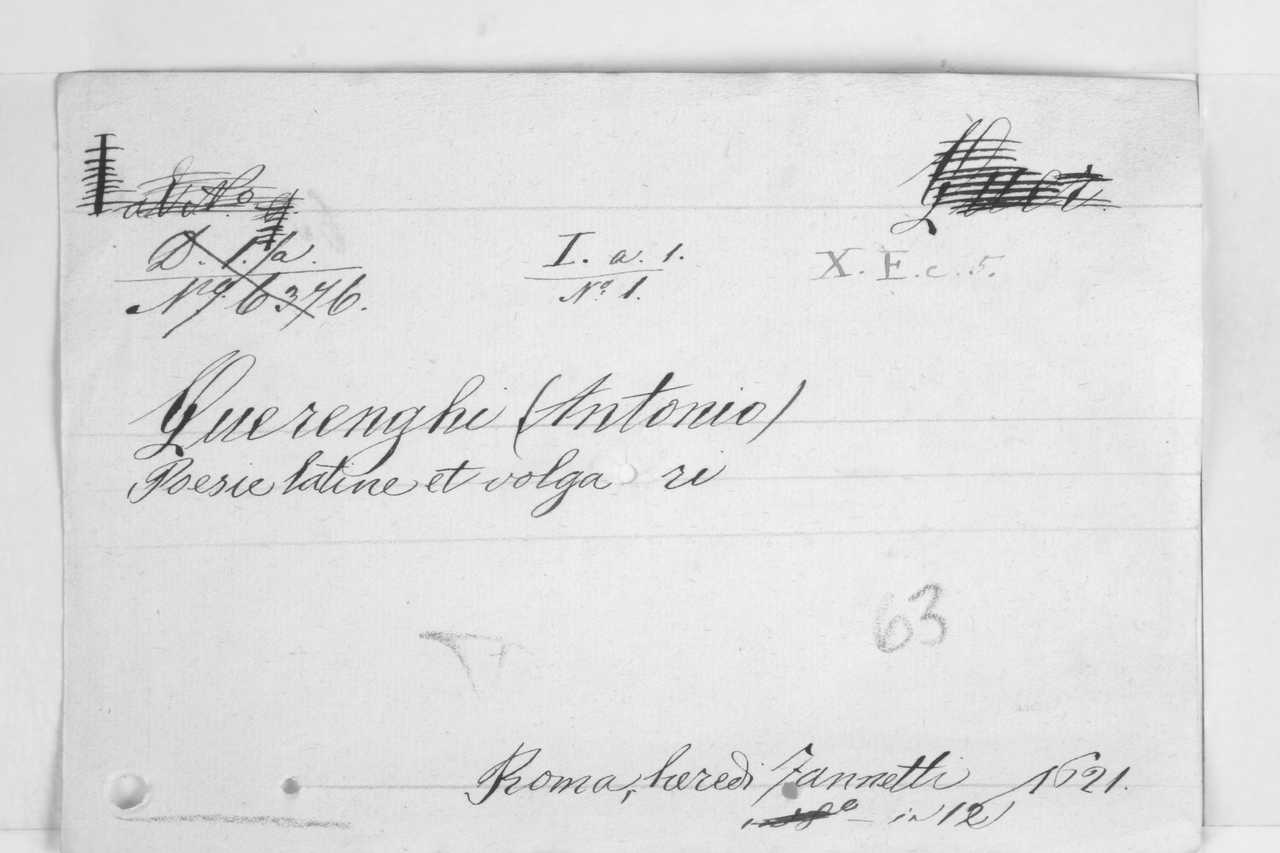 D. 1. a.
Nº 6376.
I. a. 1.
Nº 1.
X. E. c. 5.
Querenghi (Antonio)
Poesie latine et volga ri
63
Roma, heredi Zannetti 1621.
in 12